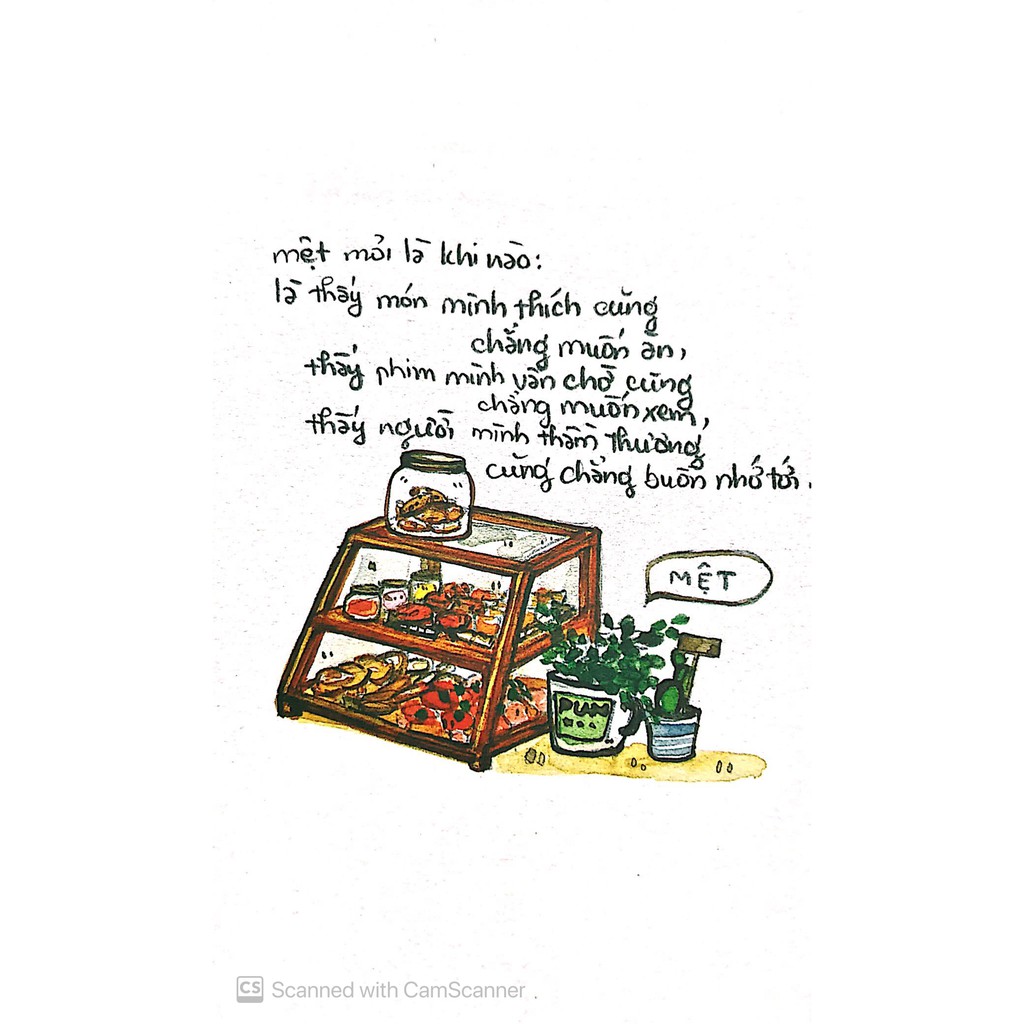 mệt mỏi là khi nào:
là thấy món mình thích cũng
chẳng muốn ăn,
thấy phim mình vẫn chờ cũng
chẳng muốn xem,
thấy người mình thầm thương
cũng chẳng buồn nhớ tới.
MỆT
PLAN
CS Scanned with CamScanner